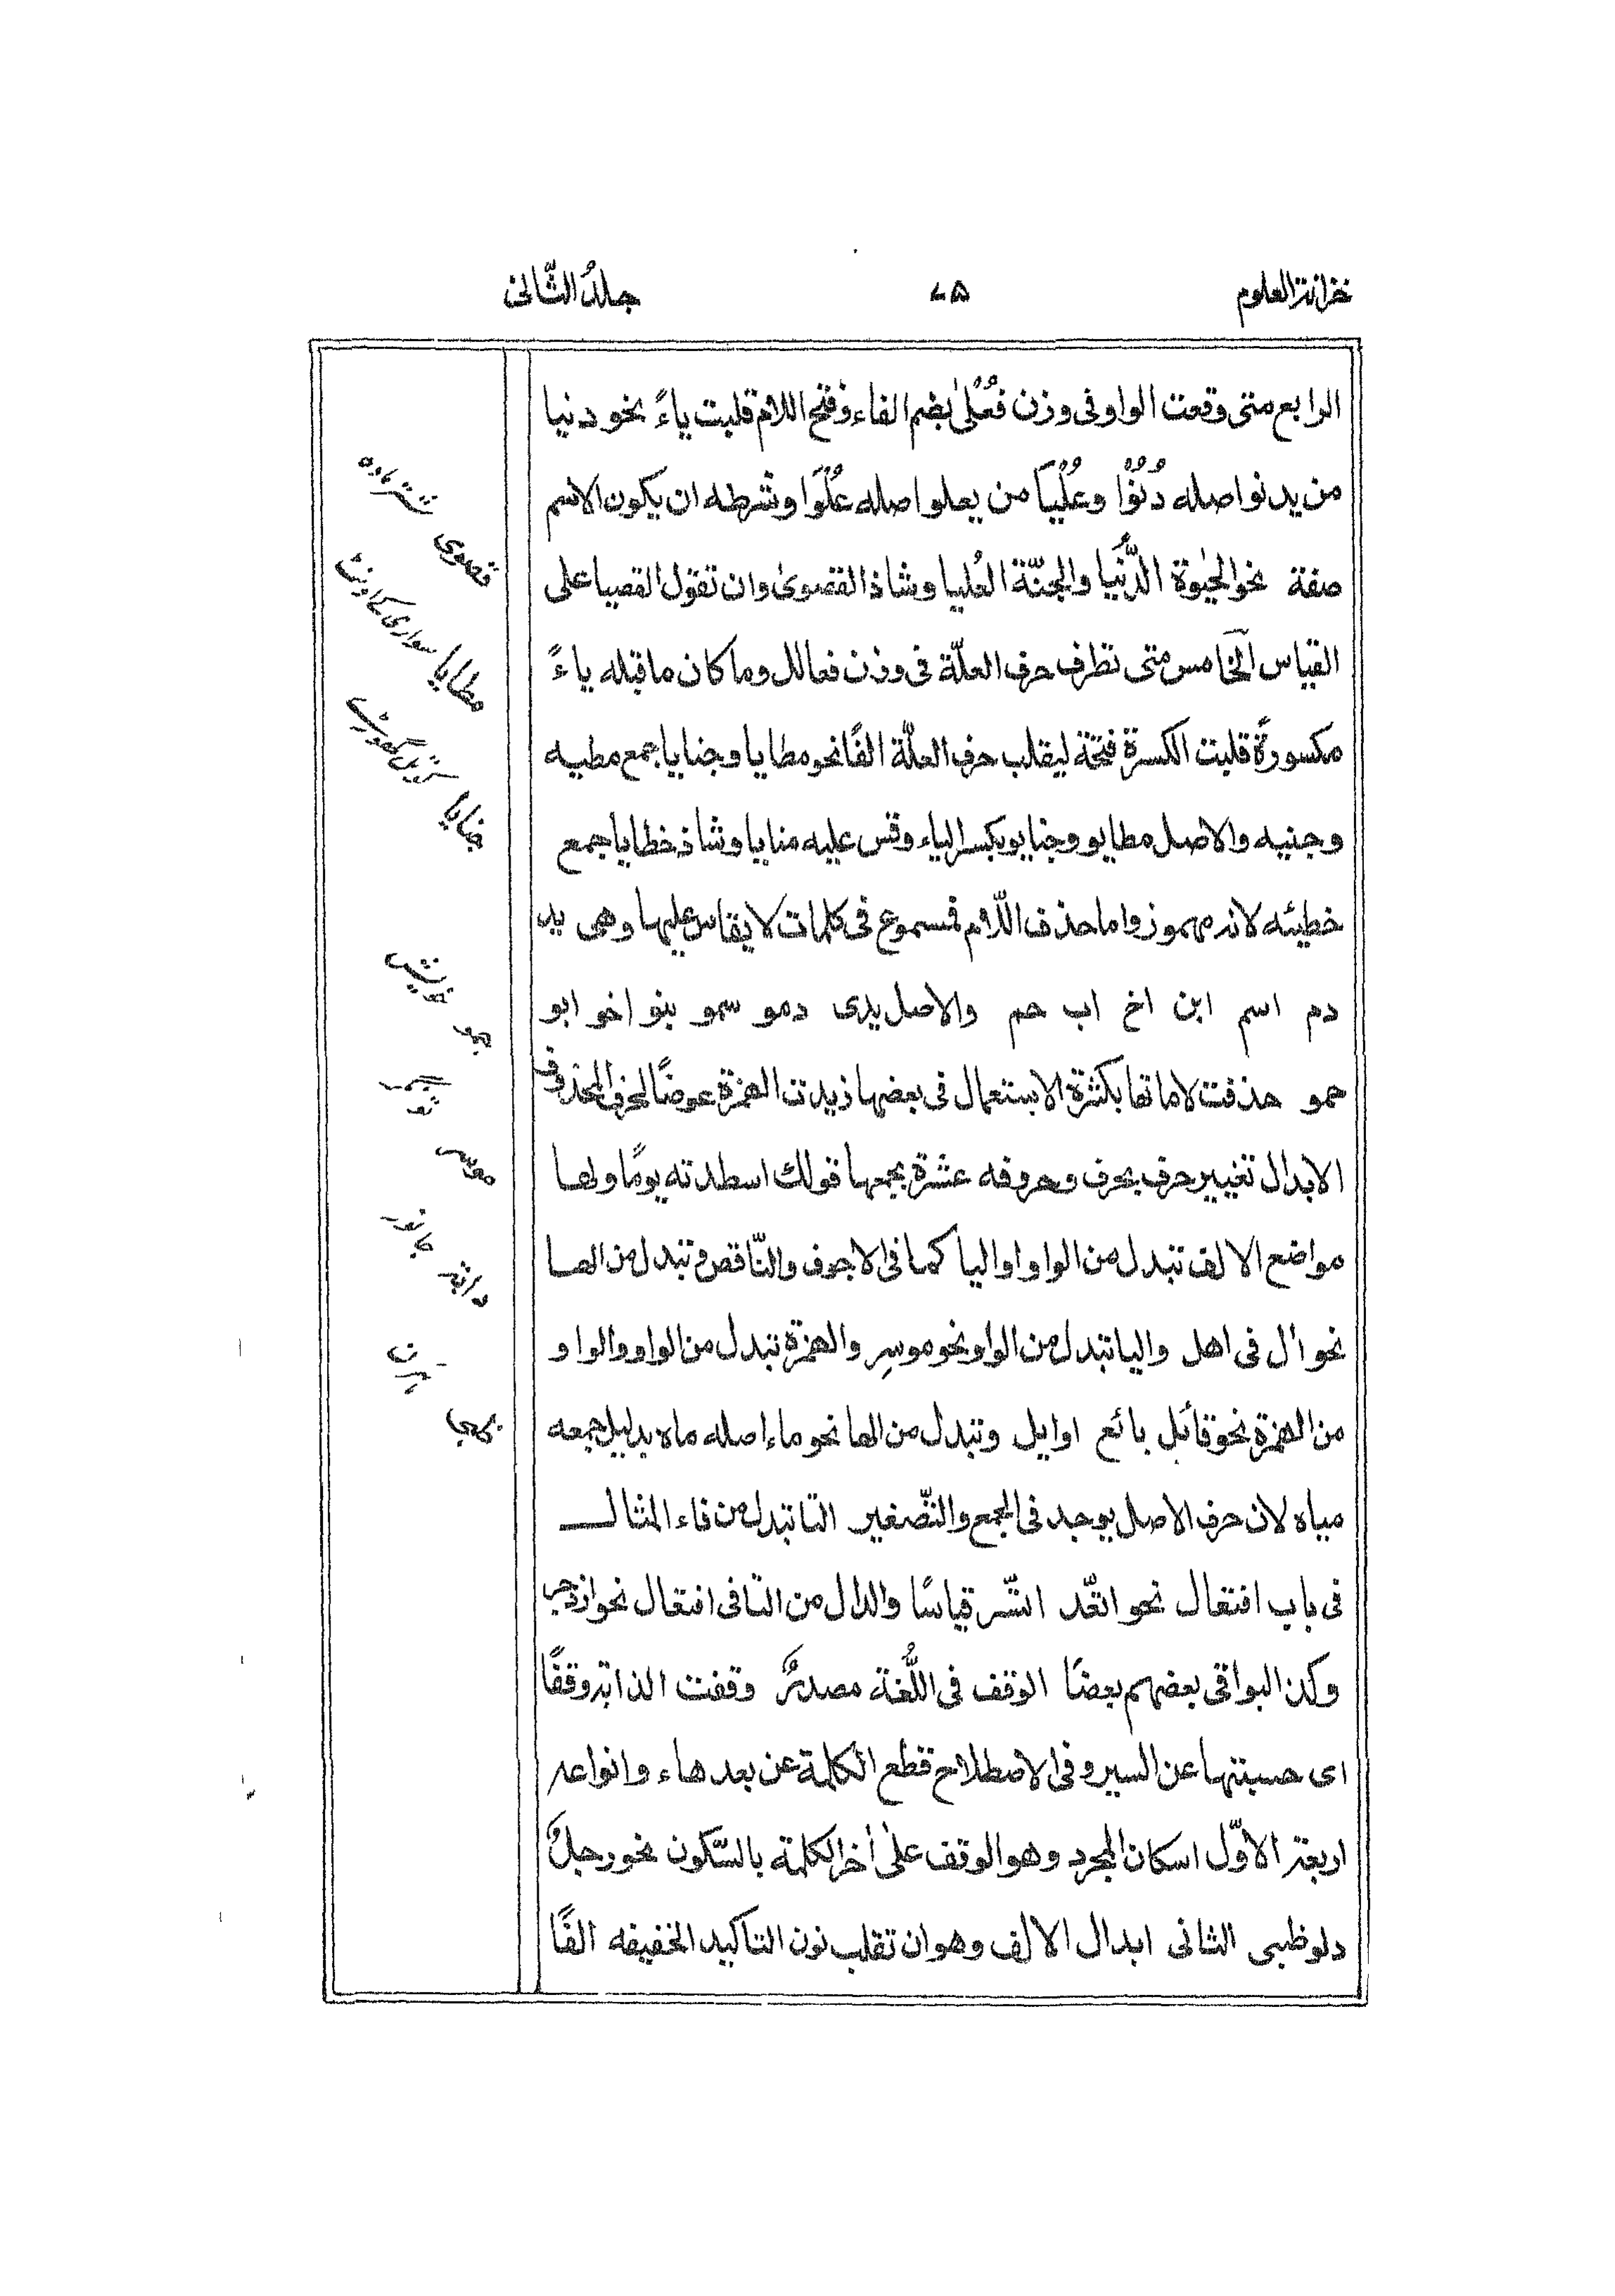 خزانة العلوم
۷۵
جلدُ الثّانی
الرابع متی وقعت الواو فی وزن فُعُلیٰ بضم الفاء وفتح اللام قلبت یاءً نحو دنیا
من یدنو اصله دُنُوًا وعُلْیَا من یعلو اصله عُلْوَا وشرطه ان یکون الاسم
صفة نحو الحیٰوة الدُّنْیا والجنّة العُلیا وشاذ القصویٰ وان تقول القصیا علی
القیاس الخامس متی تطرف حرف العلّة فی وزن فعالل وما کان ما قبله یاءً
مکسورةً قلبت الکسرة فتحة لیقلب حرف العلّة الفًا نحو مطایا وجنایا جمع مطیه
وجنیه والاصل مطایو وجنایو بکسر الیاء وقس علیه منایا وشاذ خطایا جمع
خطیئه لانه مهموز واما حذف اللام فمسموع فی کلمات لا یقاس علیها وهی ید
دم اسم ابن اخ اب حم والاصل یدی دمو سمو بنو اخو ابو
حمو حذفت لاماتها بکثرة الاستعمال فی بعضها زیدت الهمزة عوضًا لحرف المحذوف
الابدال تغییر حرف بحرف وحروفه عشرة یجمعها قولك اسطدته یومًا ولها
مواضع الالف تبدل من الواو او الیا کما فی الاجوف والنّاقص وتبدل من الها
نحو اٰل فی اهل والیا تبدل من الواو نحو موسِر والهمزة تبدل من الواو والواو
من الهمزة نحو قائل بائع اوایل وتبدل من الها نحو ماء اصله ماه بدلیل جمعه
میاه لان حرف الاصل یوجد فی الجمع والتّصغیر التا تبدل من فاء المثال
فی باب افتعال نحو اتّعد اتّسر قیاسًا والدال من التا فی افتعال نحو ازدجر
وکذ البواقی بعضهم بعضًا الوقف فی اللُّغة مصدرٌ وقفت الذابة وقفًا
ای حسبتها عن السیر وفی الاصطلاح قطع الکلمة عن بعدهاء وانواعه
اربعة الاوّل اسکان المجرد وهو الوقف علیٰ اٰخر الکلمة بالسّکون نحو رجلٌ
دلو ظبی الثانی ابدال الالف وهو ان تقلب نون التاکید الخفیفه الفًا
قصوی
مطایا سواری کے اونٹ
جنایا